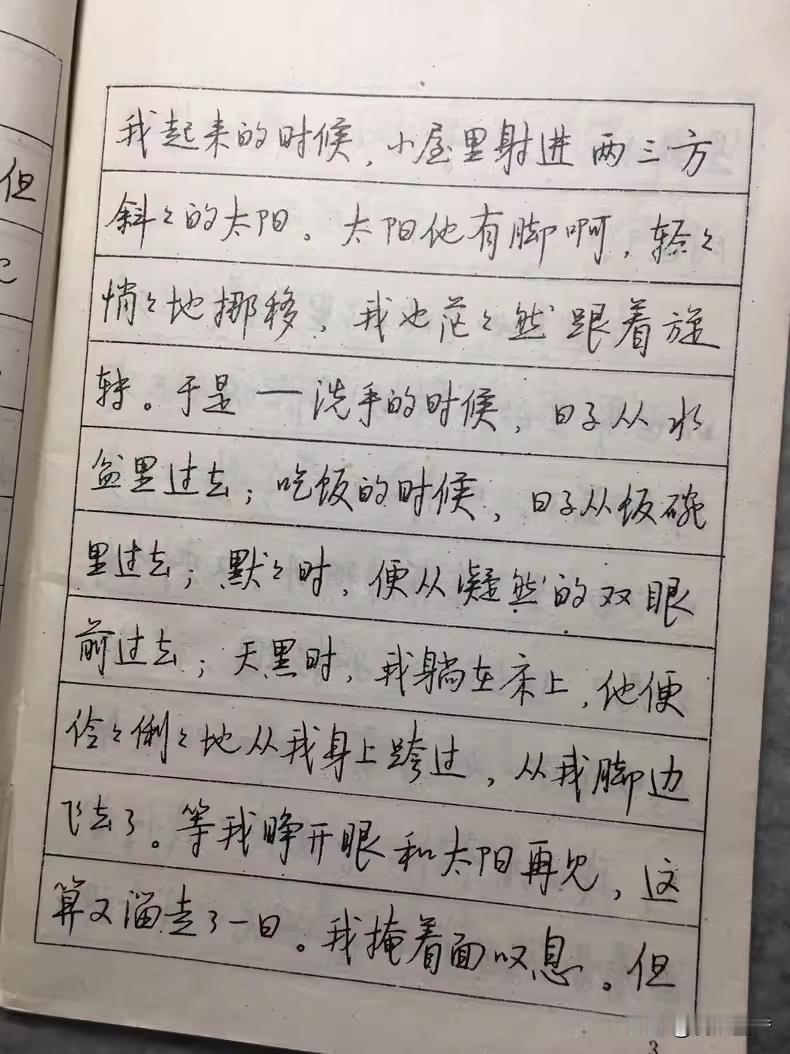 我起来的时候，小屋里射进两三方
斜々的太阳。太阳他有脚啊，轻々
悄々地挪移，我也茫々然跟着旋
转。于是——洗手的时候，日子从水
盆里过去；吃饭的时候，日子从饭碗
里过去；默々时，便从凝然的双眼
前过去；天黑时，我躺在床上，他便
伶々俐々地从我身上跨过，从我脚边
飞去了。等我睁开眼和太阳再见，这
算又溜走了一日。我掩着面叹息。但
3
但